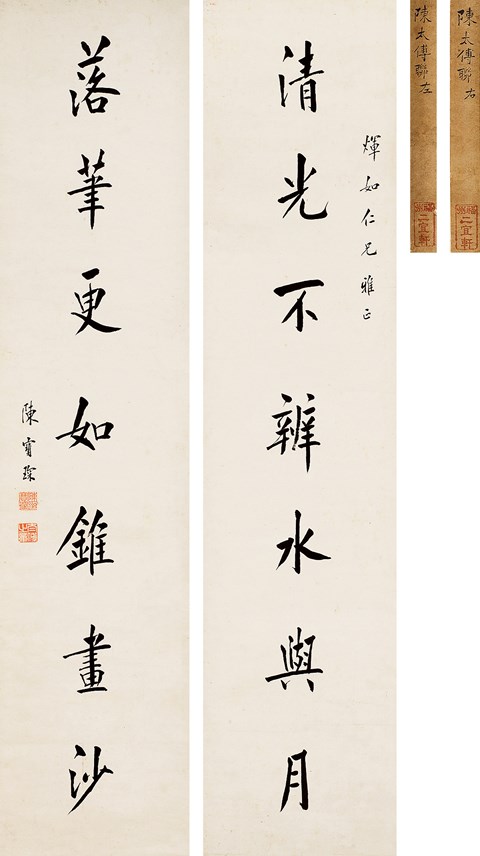 陳太傅聯右
二宜軒
陳太傅聯左
二宜軒
煇如仁兄雅正
清光不辨水與月
落筆更如錐畫沙
陳寶琛